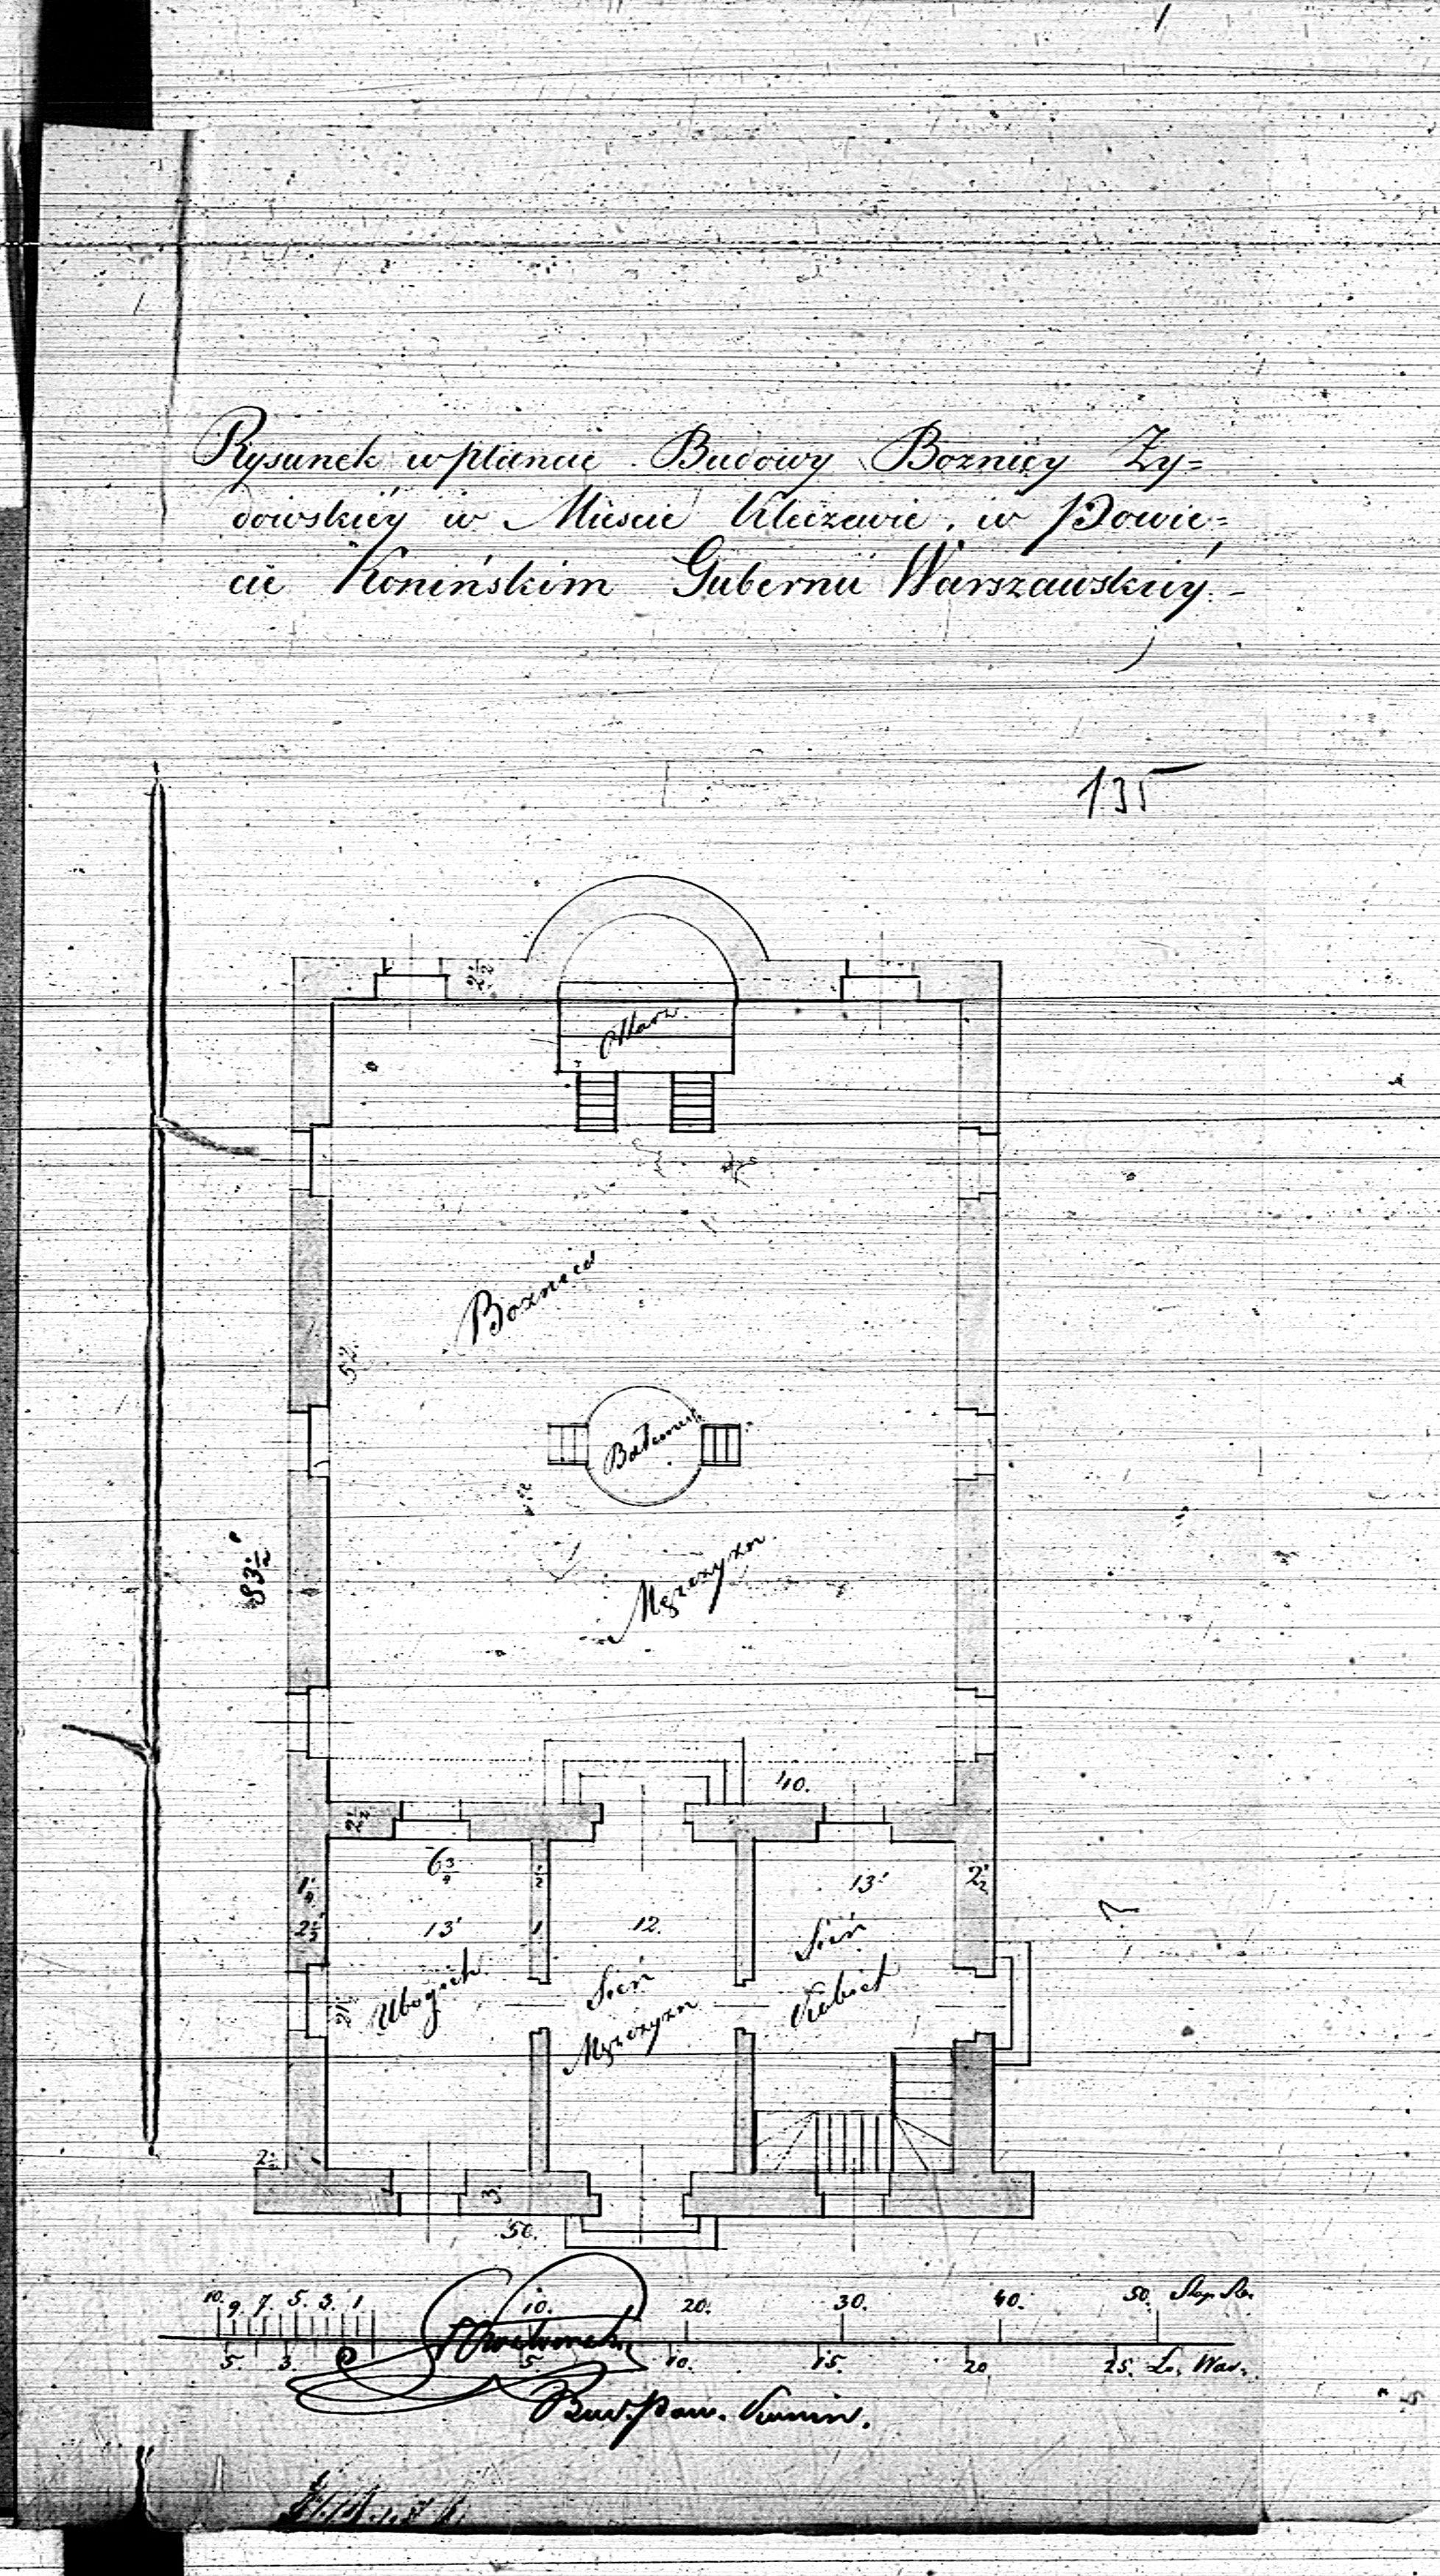 Rysunek w planie Budowy Boznicy Ży=
dowskiéy w Miescie Kleczewie, w Powie=
cie Konińskim Gubernii Warszawskiéy.-
135
2½
Ołtarz.
Boznica
52.
83½'
Męzczyzn
40.
2½
13'
2½
13'
1
12.
Sień
Kobiet
Ubogich
Sień
Męzczyzn
2½
3.
50.
10. 9. 7. 5. 3. 1 10. 20. 30. 40. 50. Stop. Re.
5. 3. 5. 10. 15. 20 25. Ło. War.
Bud. Pow. Konin.